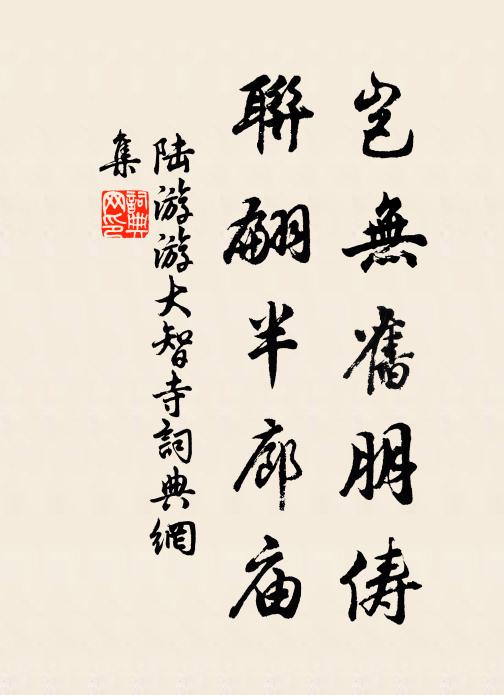 豈無舊朋儔
聯翩半廊庙
陆游游大智寺詞典網
集
詞典網印